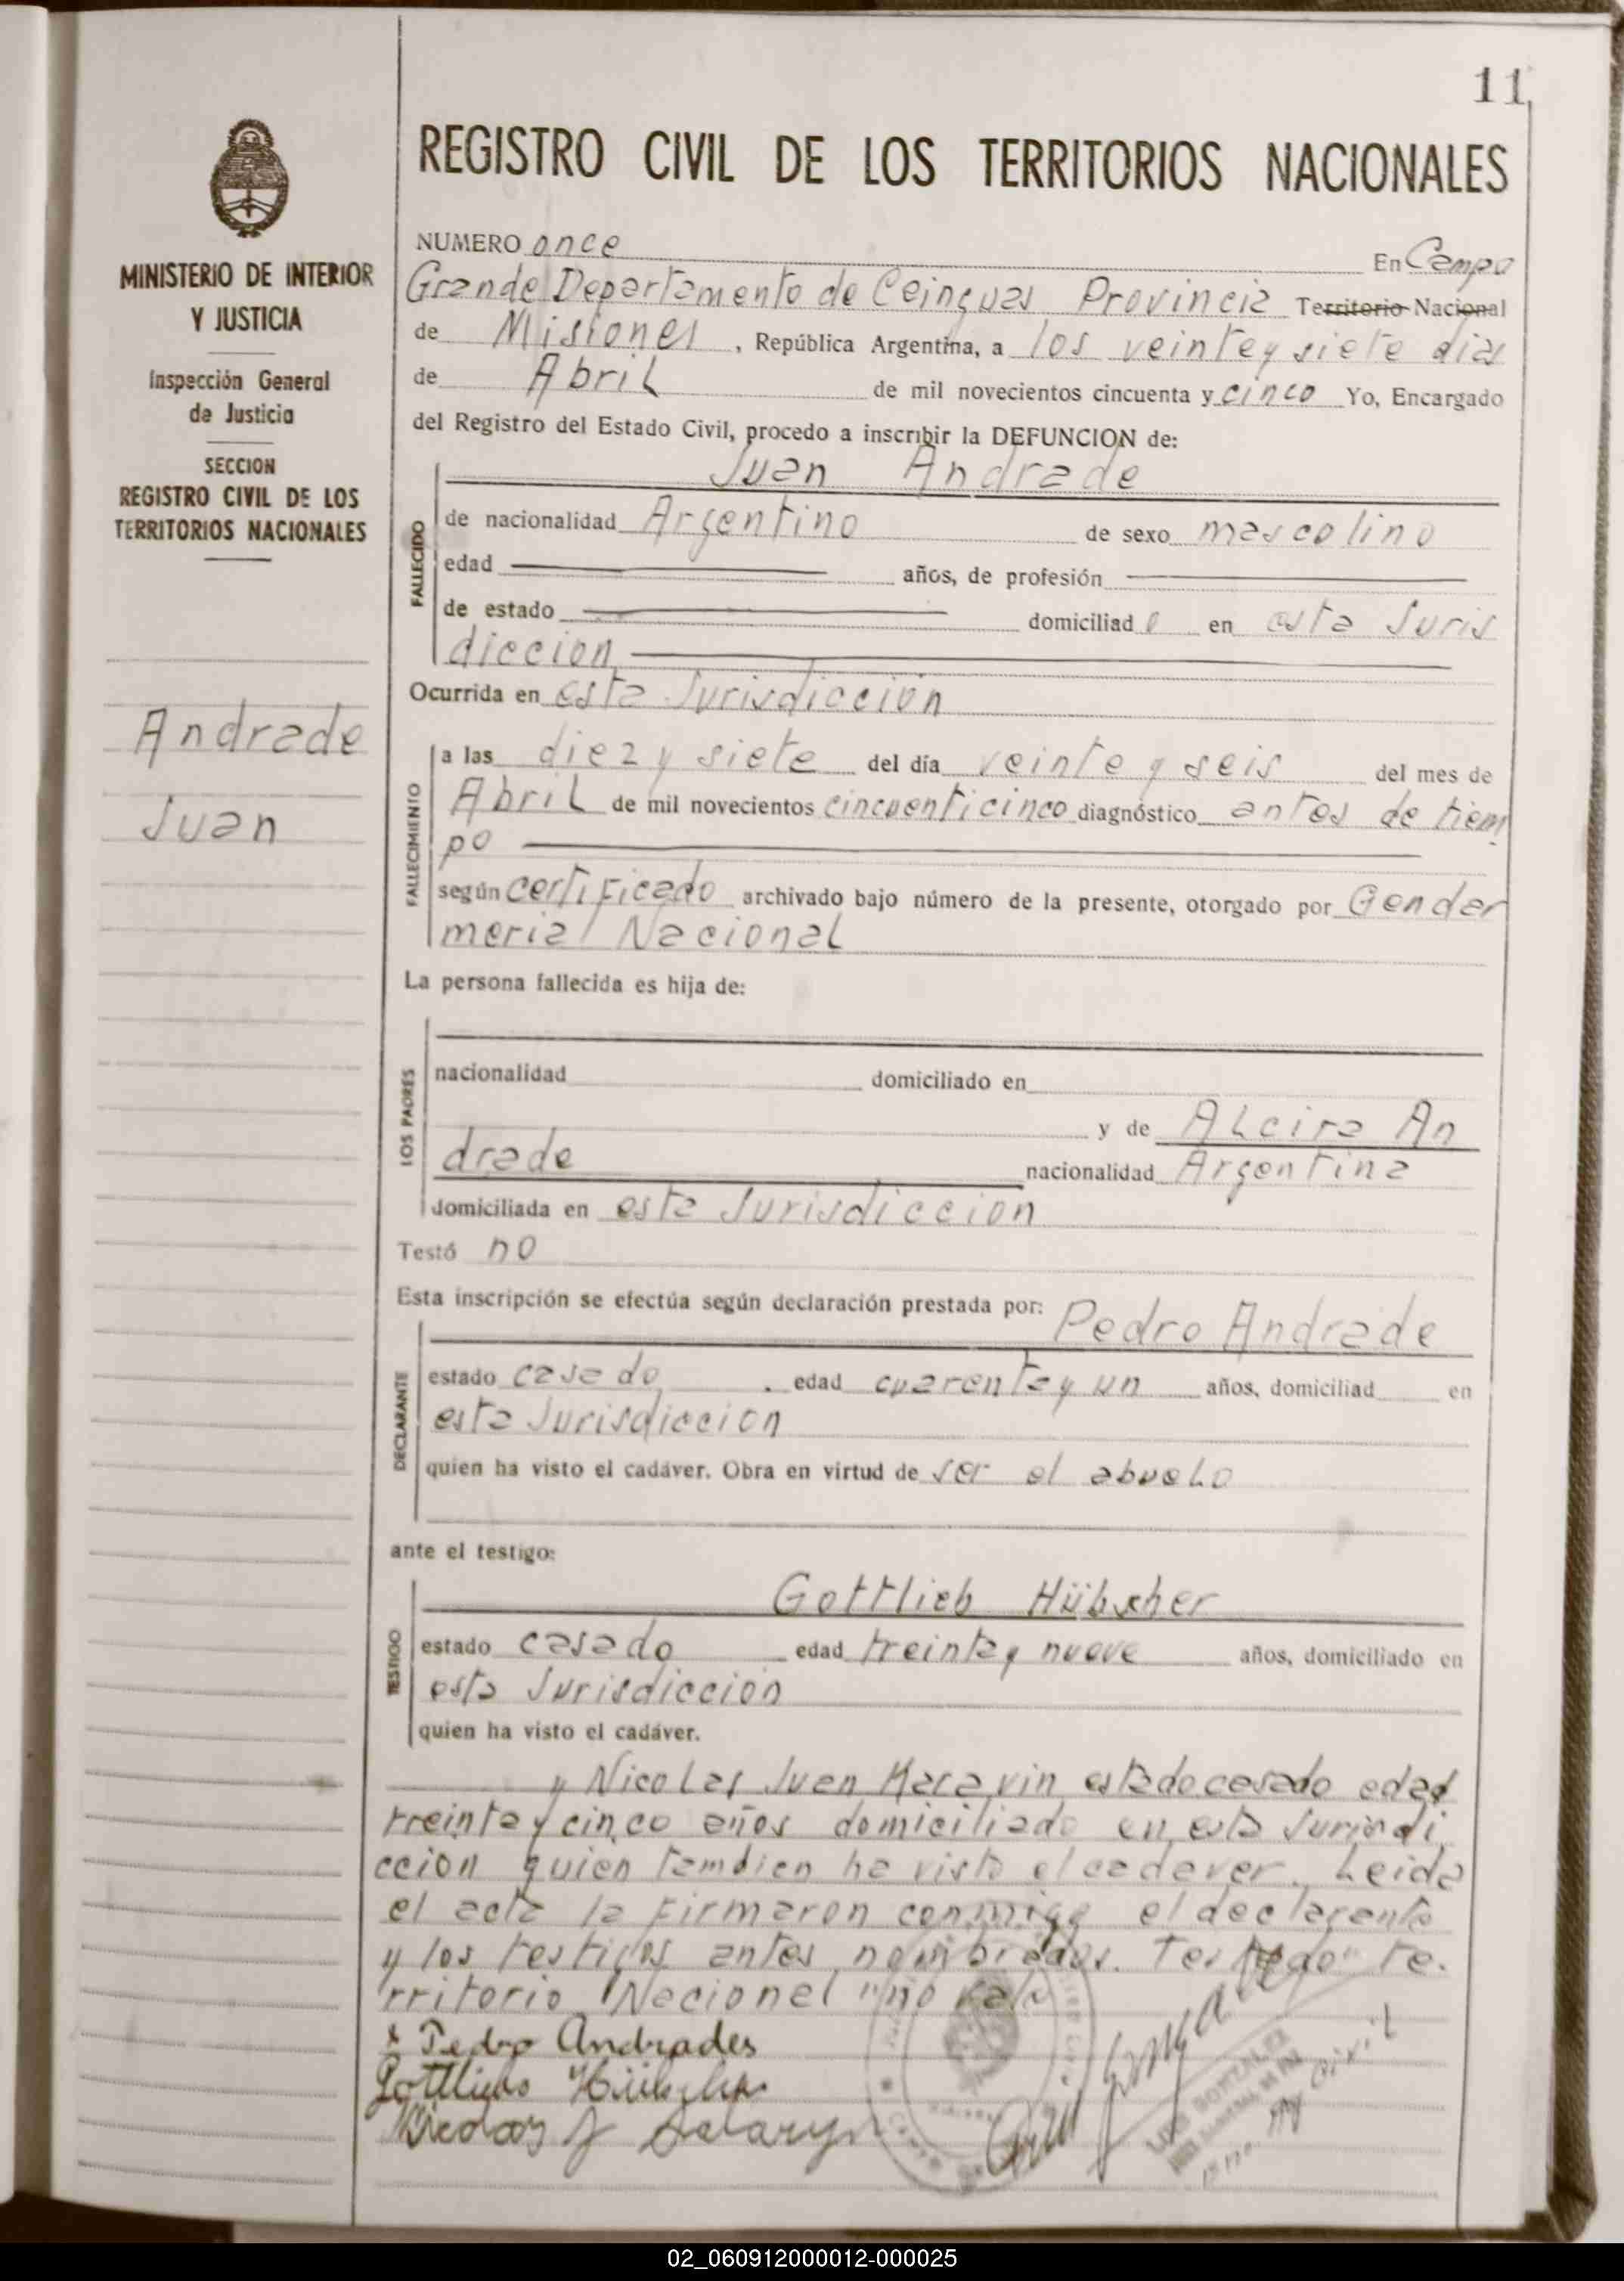 11
REGISTRO CIVIL DE LOS TERRITORIOS NACIONALES
MINISTERIO DE INTERIOR
Y JUSTICIA
Inspección General
de Justicia
SECCION
REGISTRO CIVIL DE LOS
TERRITORIOS NACIONALES
Andrade
Juan
NUMERO once En Campo
Grande Departamento de Ceinguas Provincia Territorio Nacional
de Misiones, República Argentina, a los veinte y siete dias
de Abril de mil novecientos cincuenta y cinco Yo, Encargado
del Registro del Estado Civil, procedo a inscribir la DEFUNCION de:
Juan Andrade
FALLECIDO
de nacionalidad Argentino de sexo mascolino
edad años, de profesión
de estado domiciliado en esta Juris
diccion
Ocurrida en esta Jurisdiccion
FALLECIMIENTO
a las diez y siete del día veinte y seis del mes de
Abril de mil novecientos cincuenticinco diagnóstico antes de tiem
po
según certificado archivado bajo número de la presente, otorgado por Gendar
meria Nacional
La persona fallecida es hija de:
LOS PADRES
nacionalidad domiciliado en
y de Alcira An
drade nacionalidad Argentina
domiciliada en esta Jurisdiccion
Testó no
Esta inscripción se efectúa según declaración prestada por:
Pedro Andrade
DECLARANTE
estado casado. edad cuarenta y un años, domiciliad en
esta Jurisdiccion
quien ha visto el cadáver. Obra en virtud de ser el abuelo
ante el testigo:
Gottlieb Hübscher
TESTIGO
estado casado edad treinta y nueve años, domiciliado en
esta Jurisdiccion
quien ha visto el cadáver.
y Nicolas Juan estado casado edad
treinta y cinco años domiciliado en esta Jurisdi
ccion quien tambien ha visto el cadaver. Leida
el acta la firmaron conmigo el declarante
y los testigos antes nombrados. Testado "te.
rritorio Nacional "no vale
x Pedro Andrades
Nicolas J
LUIS GONZALEZ
02_060912000012-000025